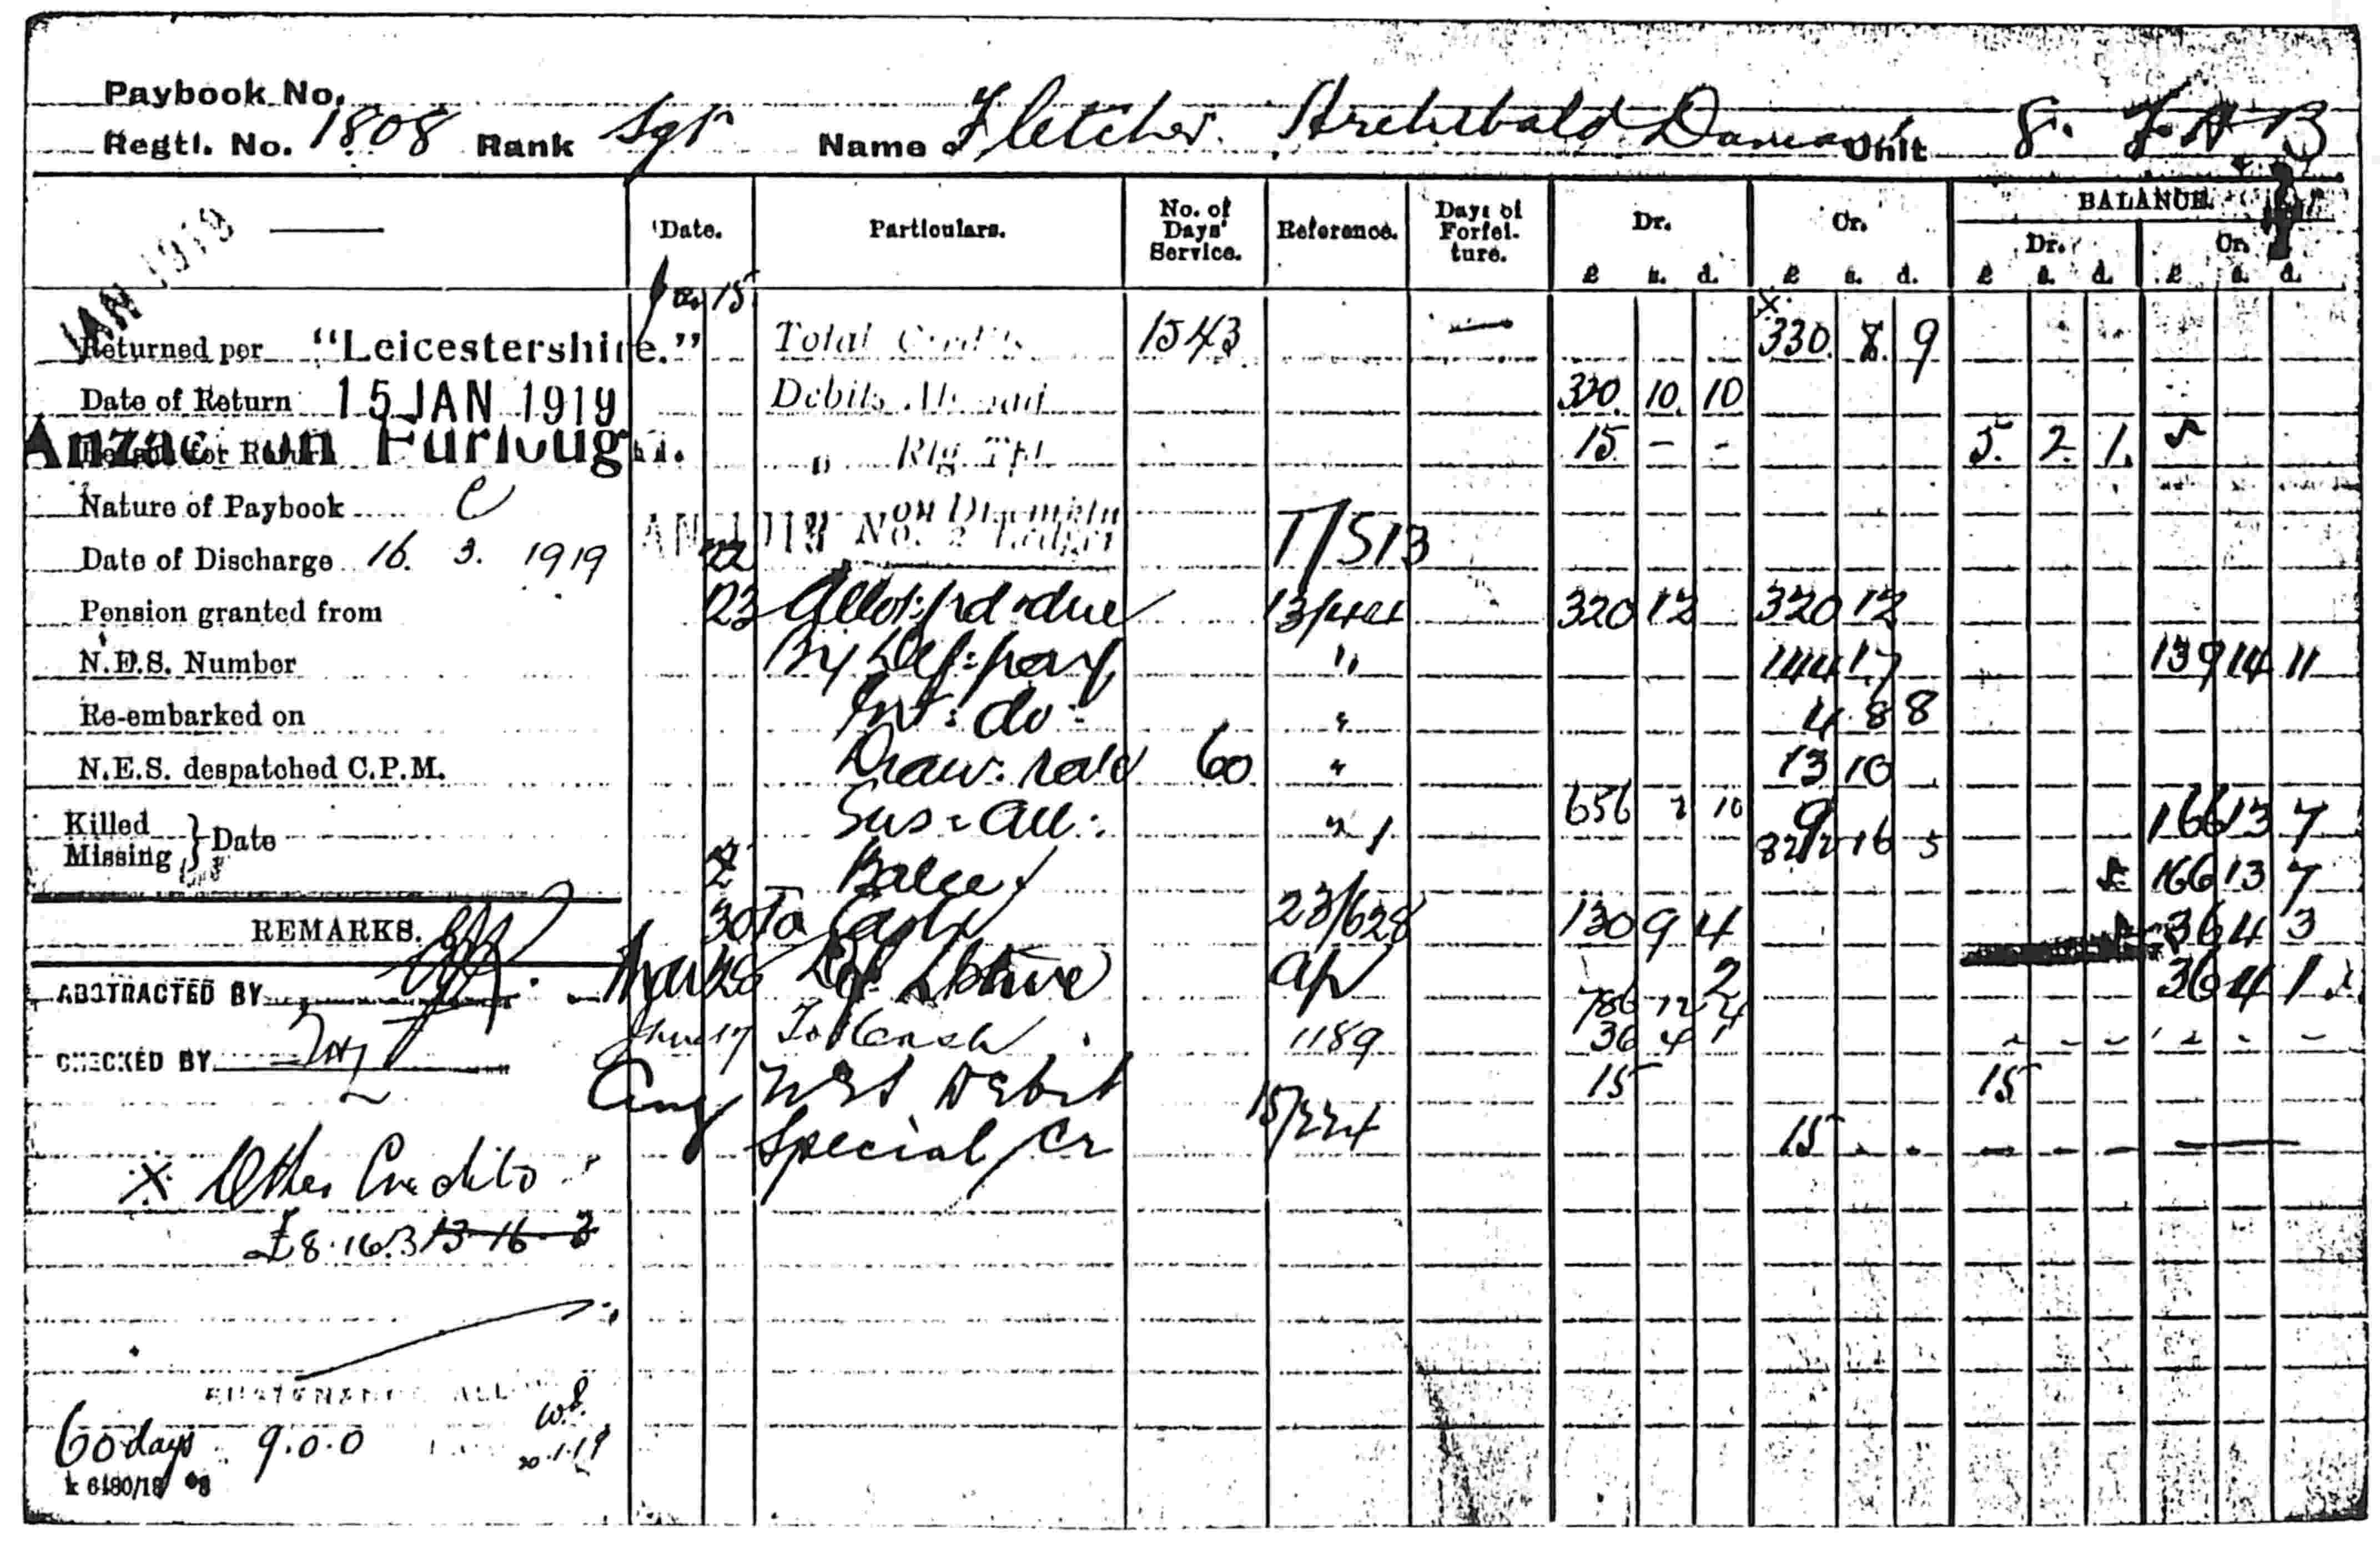 Paybook No.
Regtl. No. 1808 Rank Sgt Name Fletcher Archibald Unit 8. F.A.B
BALANCE.
Date. Particulars. No. of Days' Service. Reference. Days of Forfeiture. Dr. Cr. Dr. Cr.
£ s. d. £ s. d. £ s. d. £ s. d.
JAN 1919
Jan 15
Returned per "Leicestershire." Total Credits 1543 — × 330 8 9
Date of Return 15 JAN 1919 Debits Abroad 320 10 10
Anzac on Furlough. " 15 - - 5. 2. 1.
Nature of Paybook C
Date of Discharge 16. 3. 1919 22 No. 2 Ledger 17/513
Pension granted from 23 Allot: pd & due 320 12 320 12
N.E.S. Number By Def: pay " 144 17 139 14 11
Re-embarked on Int: do: " 4 8 8
N.E.S. despatched C.P.M. Draw: rate 60 " 13 10
Killed Missing } Date Sus: All: " 656 2 10 9 166 13 7
822 16 5
Balce 166 13 7
REMARKS. 30 To Cash 23/628 130 9 4 36 4 3
ABSTRACTED BY Mar 28 2 36 4 1
786 12 4
CHECKED BY June 17 To Cash 1189 36 4 1 - - - - - -
Aug NES Debit 15 15
Special Cr 15/224 15 - - - - -
× Other Credits
£8.16.3 13-16-3
SUSTENANCE ALL
60 days 9.0.0
20.1.19
k 6480/18